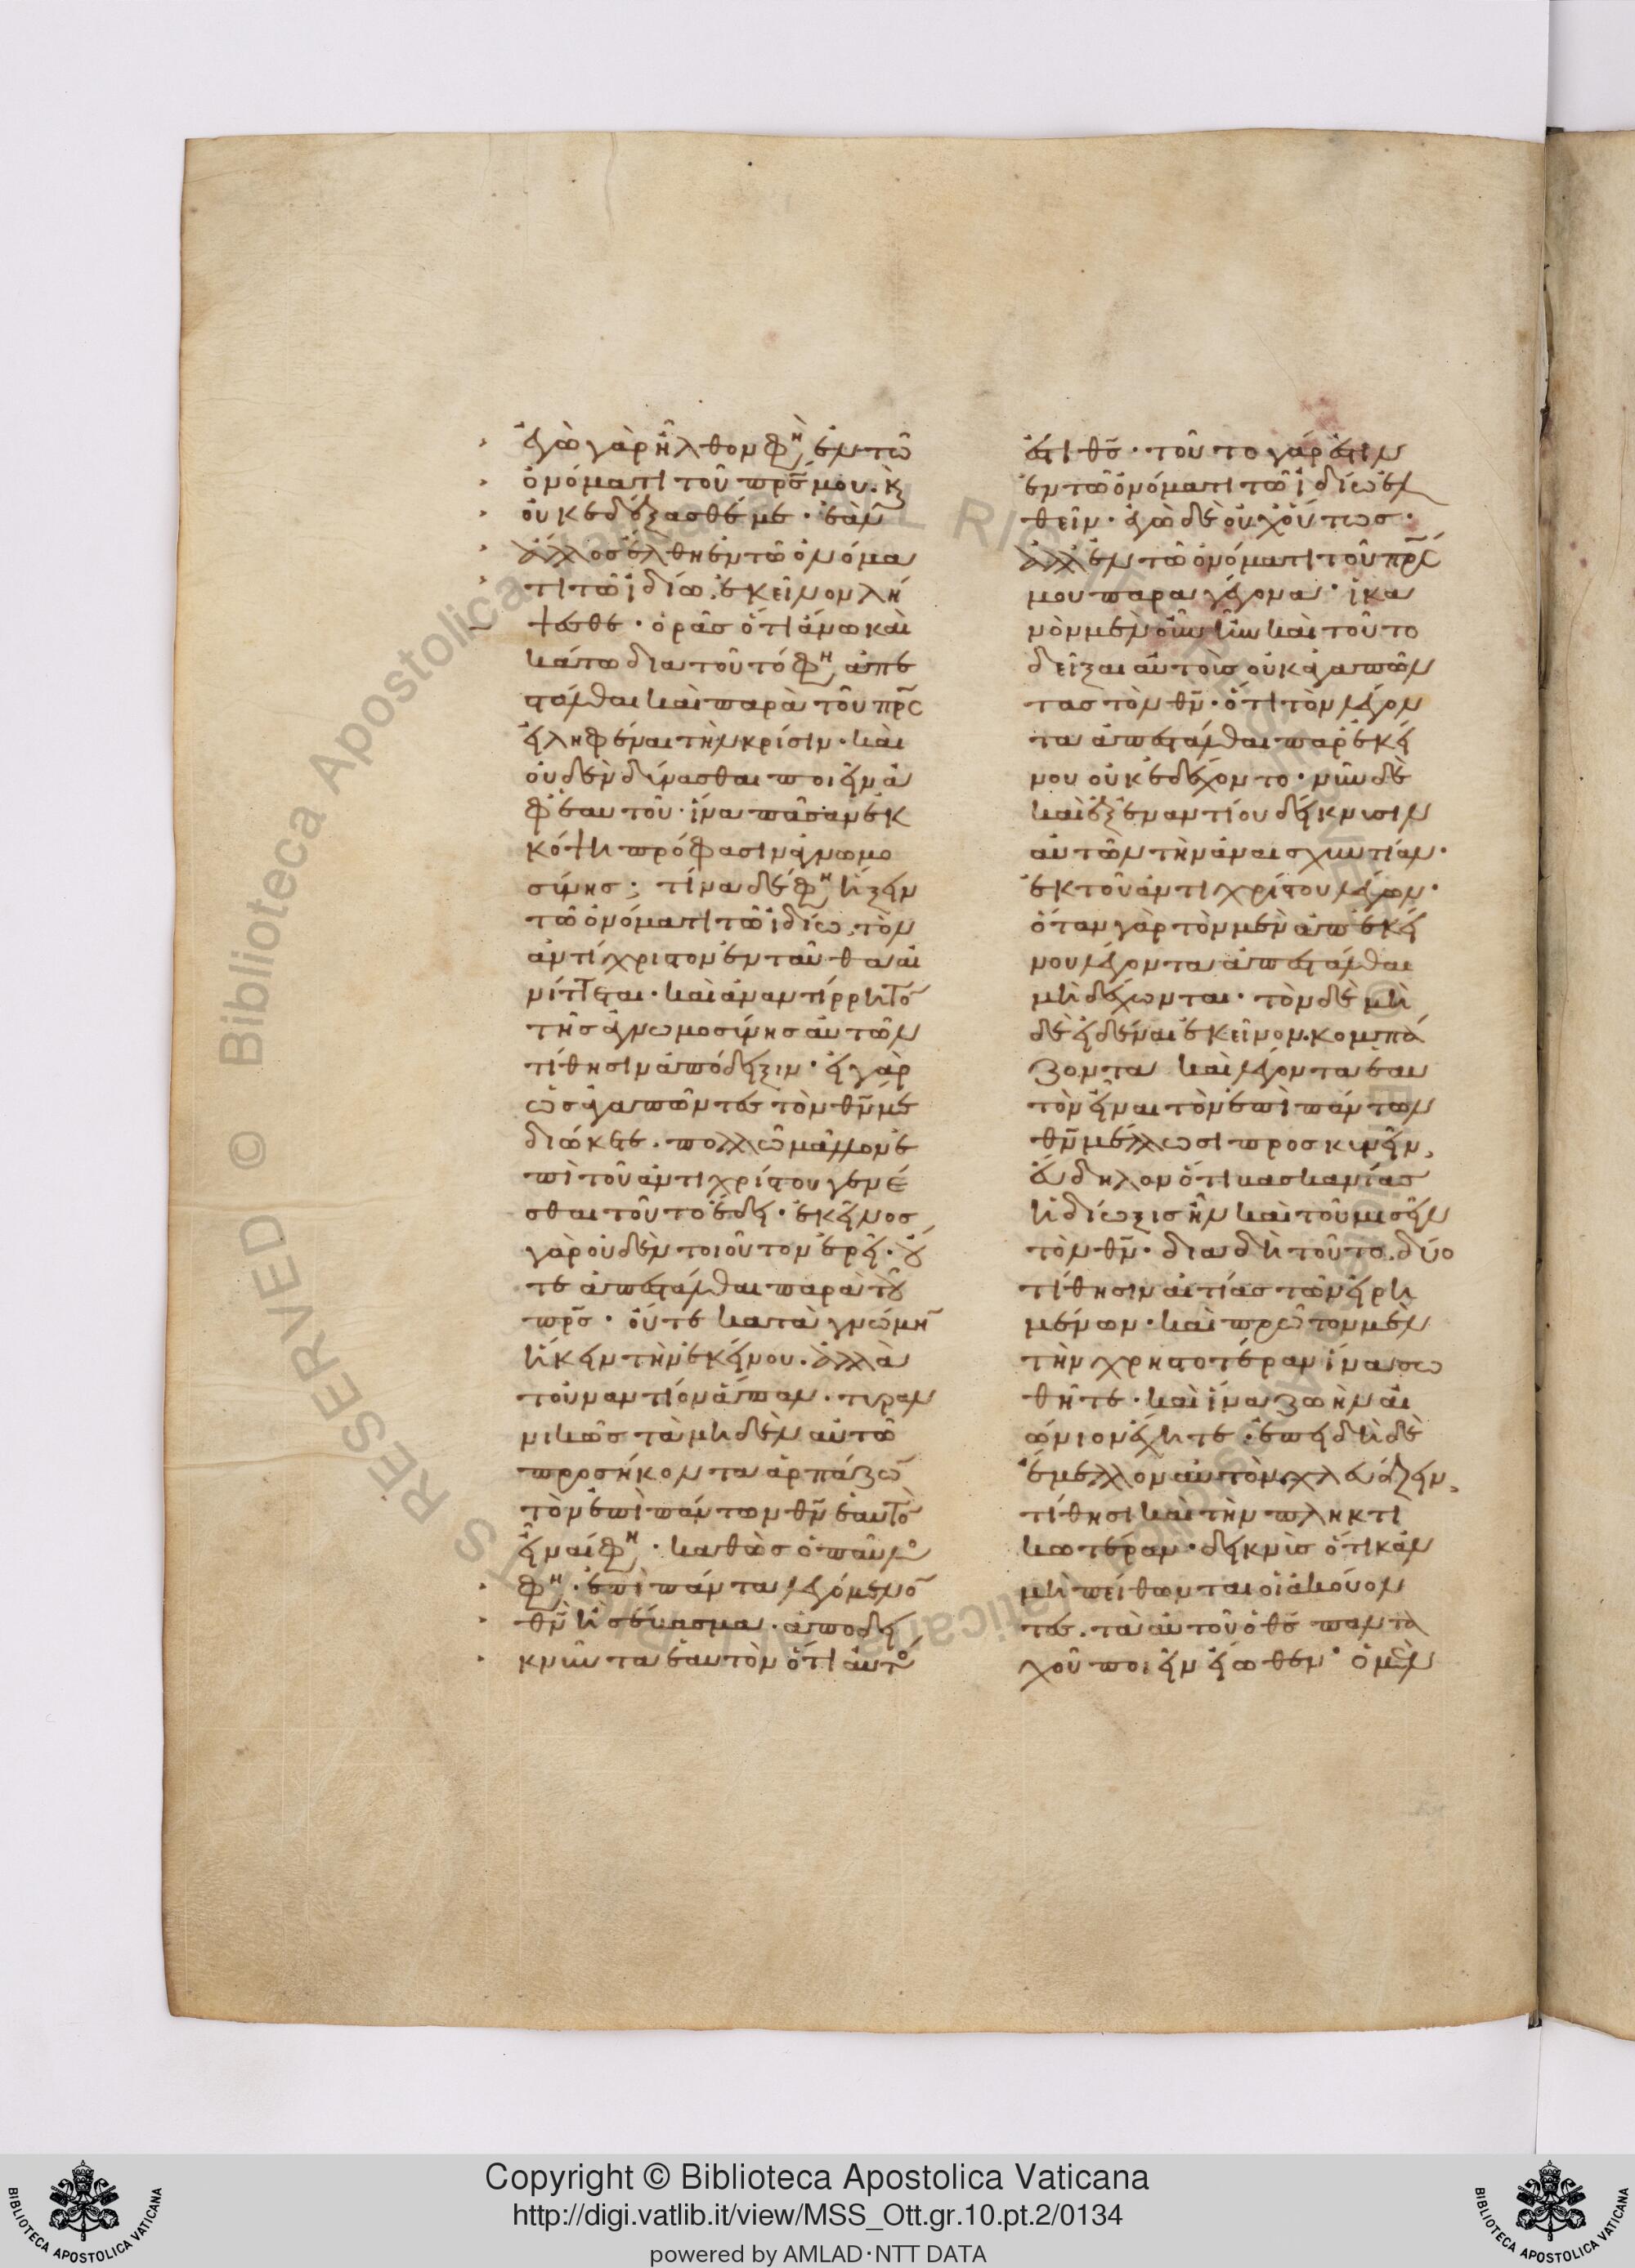 ἐγὼ γὰρ ἦλθον φη ἐν τῶ
ὀνόματι τοῦ πρσ μου. κ
οὐκ ἐδέξασθέ με · ἐὰν
ἄλλοσ ἔλθη ἐν τῶ ὀνόμα
τι τῶ ἰδίω. ἐκεῖνον λή
ψεσθε · ὁρᾶσ ὅτι ἄνω καὶ
κάτω δια τοῦτό φη ἀπε
στάλθαι καὶ παρὰ τοῦ πρσ
εἰληφέναι τὴν κρίσιν · καὶ
οὐδὲν δύνασθαι ποιεῖν ἀ
φ ἑαυτοῦ · ἵνα πᾶσαν ἐκ
κόψη πρόφασιν ἀγνωμο
σύνησ : τίνα δέ φη ἥξειν
τῶ ὀνόματι τῶ ἰδίω. τὸν
ἀντίχριστον ἐνταῦθα αἰ
νίττεται · καὶ ἀναντίρρητο
τῆσ ἀγνωμοσύνησ αὐτῶν
τίθησιν ἀπόδειξιν · εἰ γὰρ
ὡσ ἀγαπῶντεσ τὸν θν με
διώκετε. πολλῶ μᾶλλον ἐ
πὶ τοῦ ἀντιχρίστου γενέ
σθαι τοῦτο ἔδει · ἐκεῖνοσ
γὰρ οὐδὲν τοιοῦτον ἐρεῖ · οὔ
τε ἀπεστάλθαι παρὰ τοῦ
πρσ · οὔτε κατὰ γνώμη
ἥκειν τὴν ἐκείνου. ἀλλὰ
τοὐναντίον ἅπαν. τυραν
νικῶσ τὰ μηδὲν αὐτῶ
προσήκοντα ἁρπάζω
τὸν ἐπὶ πάντων θν ἑαυτὸ
εἶναί φη · καθὼσ ὁ παῦλο
φη · ἐπὶ πάντα λεγόμενο
θν ἢ σέβασμα. ἀποδει
κνῦντα ἑαυτὸν ὅτι αὐτό
ἐστι θσ · τοῦτο γάρ ἐστιν
ἐν τῶ ὀνόματι τῶ ἰδίω ἐλ
θεῖν · ἐγὼ δὲ οὐχ οὕτωσ ·
ἀλλ ἐν τῶ ὀνόματι τοῦ πρσ
μου παραγέγονα · ἱκα
νὸν μὲν οὖν ἦν καὶ τοῦτο
δεῖξαι αὐτοὺσ οὐκ ἀγαπῶν
τασ τὸν θν · ὅτι τὸν λέγον
τα ἀπεστάλθαι παρ ἐκεί
νου οὐκ ἐδέχοντο · νῦν δὲ
καὶ ἐξ ἐναντίου δείκνυσιν
αὐτῶν τὴν ἀναισχυντίαν ·
ἐκ τοῦ ἀντιχρίστου λέγων ·
ὅταν γὰρ τὸν μὲν ἀπ ἐκεί
νου λέγοντα ἀπεστάλθαι
μὴ δέχωνται · τὸν δὲ μη
δὲ εἰδέναι ἐκεῖνον. κομπά
ζοντα καὶ λέγοντα ἑαυ
τὸν εἶναι τὸν ἐπὶ πάντων
θν μέλλωσι προσκυνεῖν,
εὔδηλον ὅτι βασκανίασ
ἡ δίωξισ ἦν καὶ τοῦ μισεῖν
τὸν θν · δια δὴ τοῦτο. δύο
τίθησιν αἰτίασ τῶν εἰρη
μένων · καὶ πρῶτον μὲν
τὴν χρηστοτέραν ἵνα σω
θῆτε · καὶ ἵνα ζωὴν αἰ
ώνιον ἔχητε · ἐπειδὴ δὲ
ἔμελλον αὐτὸν χλευάζειν,
τίθησι καὶ τὴν πληκτι
κωτέραν · δεικνὺσ ὅτι κἂν
μὴ πείθωνται οἱ ἀκούον
τεσ. τὰ αὐτοῦ ὁ θσ παντα
χοῦ ποιεῖν εἴωθεν · ὁ μὲν